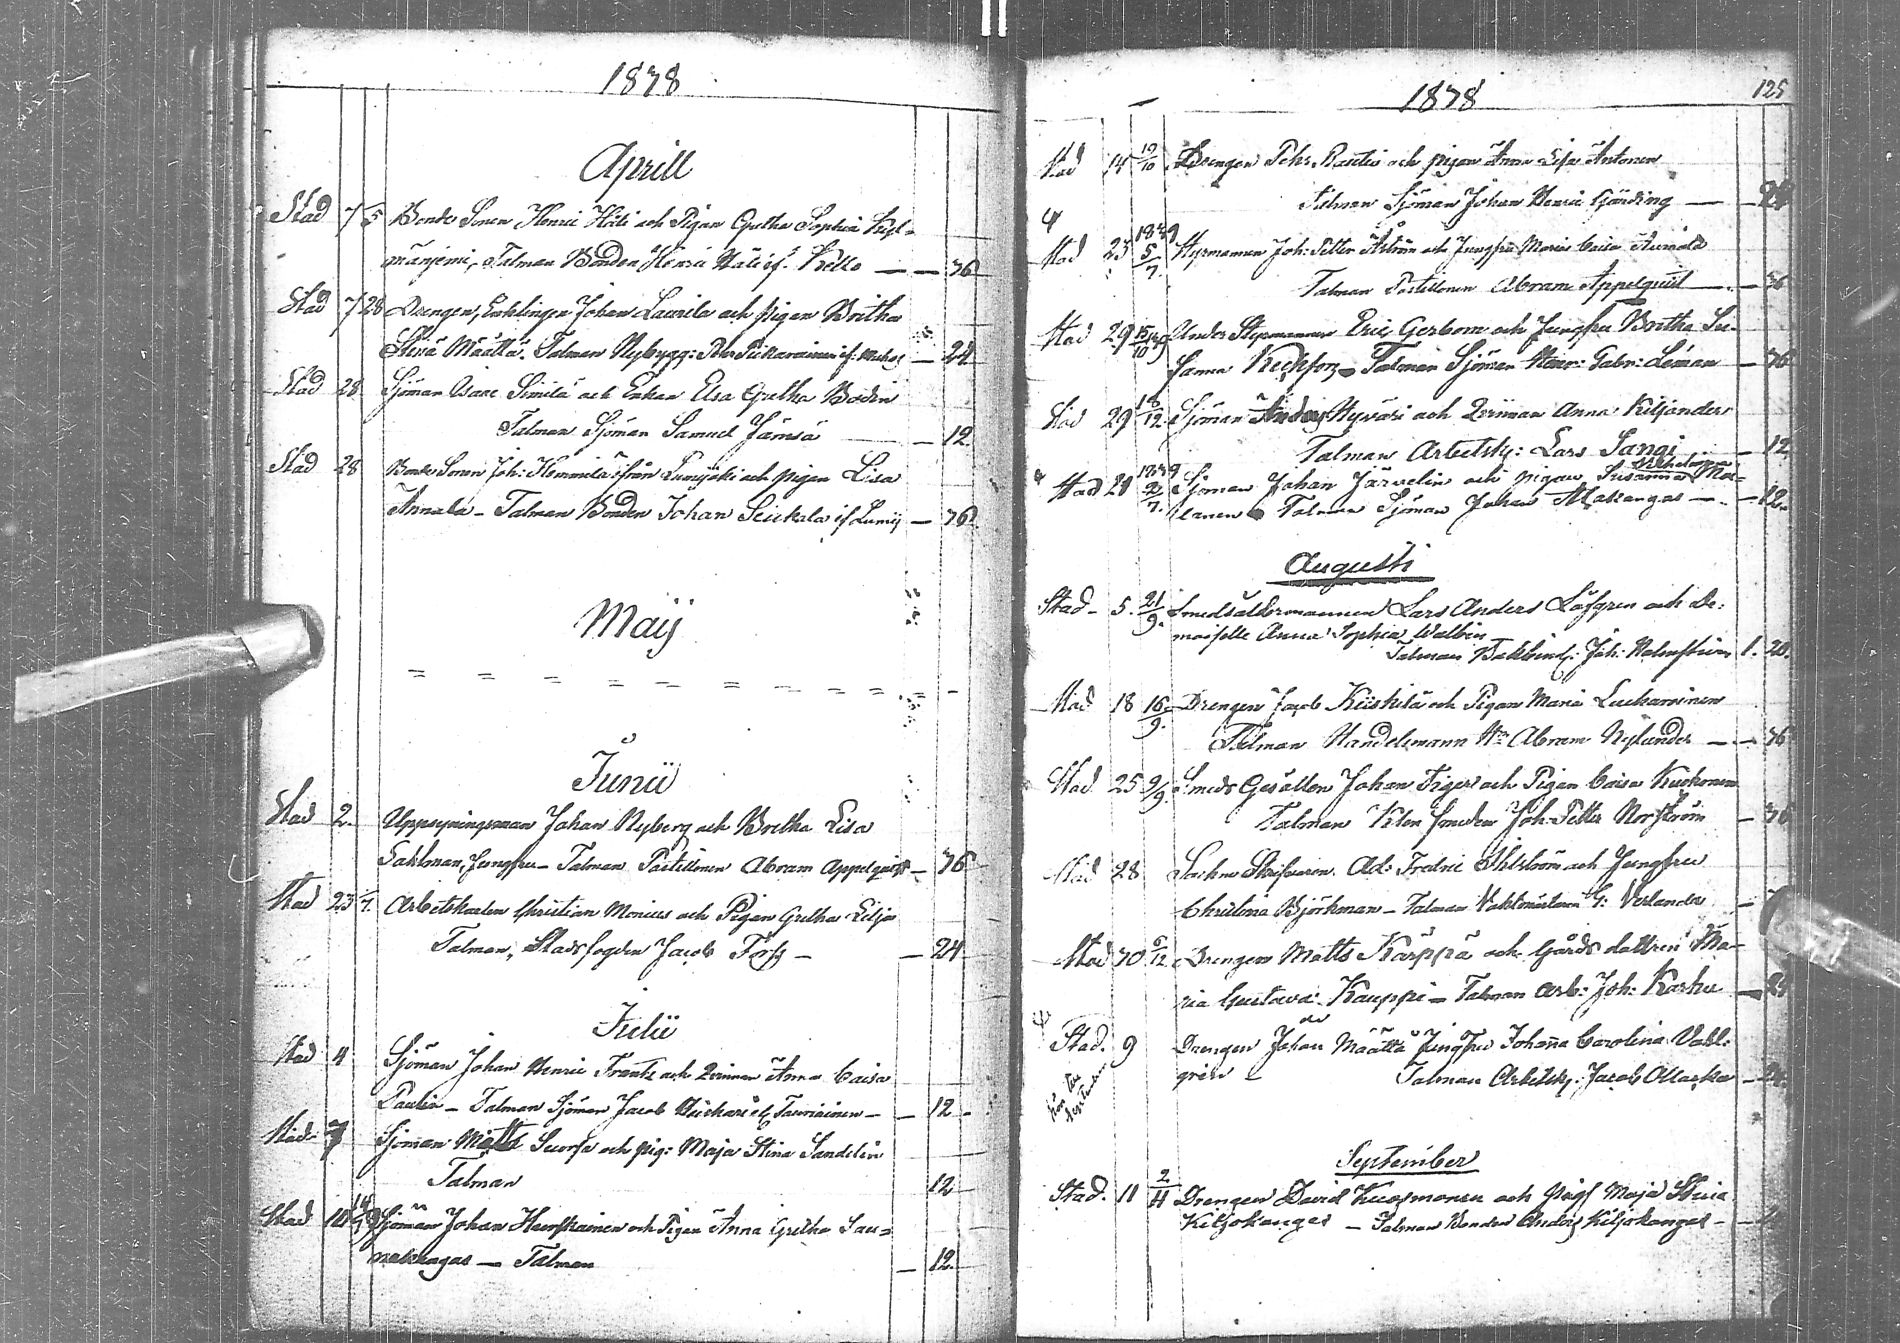 1838
Aprill
Stad 7 5 Bonde Sonen Henric Häti och Pigan Gretha Sophia
märjemi, Talman Bonden Henric Häti if: Kello — — 36
Stad 7 28 Drengen, Enklingen Johan Laurila och pigan Britha
Stina Määttä. Talman Nybygg: — 24
Stad 28 Sjöman Isaac Simila och Enkan Elsa Gretha Bodin
Talman Sjöman Samuel Jämsä — 12
Stad 28 Bonde Sonen Joh: Hemmilä ifrån Lumijoki och pigan Lisa
Annala – Talman Bonden Johan if Lumij — 36
Maij
Junii
Stad 2 Uppsyningsman Johan Nyberg och Britha Lisa
Sahlman, Jungfru – Talman Postillionen Abram Appelqvist — 36
Stad 23 Arbetskarlen Christian Monius och Pigan Gretha Lilja
Talman, Stadsfogden Jacob Forss — — 24
Julii
Stad 4 Sjöman Johan Henric Frantz och Qvinnan Anna Caisa
Paulin – Talman Sjöman Jacob Tauriainen — — 12
Stad 7 Sjöman Matts Suorsa och pig: Maja Stina Sandelin
Talman 12
Stad 14 Sjöman Johan Hurskainen och Pigan Anna Gretha Sau=
nakangas — Talman — 12
1838 125
Stad 14 Drengen Pehr Rautio och pigan Anna Lisa Antonen
Talman Sjöman Johan Henric Gjärding — — 24
Stad 23 1839 5/7 Styrmannen Joh: Petter Åström och Jungfru Maria Caisa
Talman Postillionen Abram Appelquist — 36
Stad 29 Under Styrmannen Eric Gerbom och Jungfru Britha Su-
sanna Talman Sjöman Henr: Gabr: Leman — 36
Stad 29 Sjöman Anders Hyväri och Qvinnan Anna Kiljander
Talman Arbetsk: Lars Sangi — 12
Stad 28 1839 2/7 Sjöman Johan Järvelin och pigan Susanna Wilhelmina
lanen Talman Sjöman Johan Matkangas — 12
Augusti
Stad 5 21/9 Smedsåldermannen Lars Anders Löfgren och De:
moiselle Anna Sophia Walbin
Talman Bokbind: Joh: Holmström 1. 20
Stad 18 16/9 Drengen Jacob Kiiskilä och Pigan Maria Luckarinen
Talman Handelsmann Hr Abram Nylander — — 36
Stad 25 9/9 Smeds Gesällen Johan Figer och Pigan Caisa Kuckonen
Talman Klen Smeden Joh: Petter Norström — 36
Stad 28 Ad: Fredric Ahlström och Jungfru
Christina Björkman – Talman Vaktmästaren Verlander
Stad 30 6/12 Drengen Matts Karppa och Gårds dottren Ma-
ria Gustava Kauppi – Talman Arb: Joh: Karhu — 24
Stad. 9 Drengen Johan Määttä och Jungfru Johanna Carolina Vahl:
gren – Talman Arbetsk: Jacob Ollaska – 24
hör till September
September
Stad. 11 2/11 Drengen David Kuosmanen och pig: Maja Stina
Kiljokangas – Talman Bonden Anders Kiljokangas –